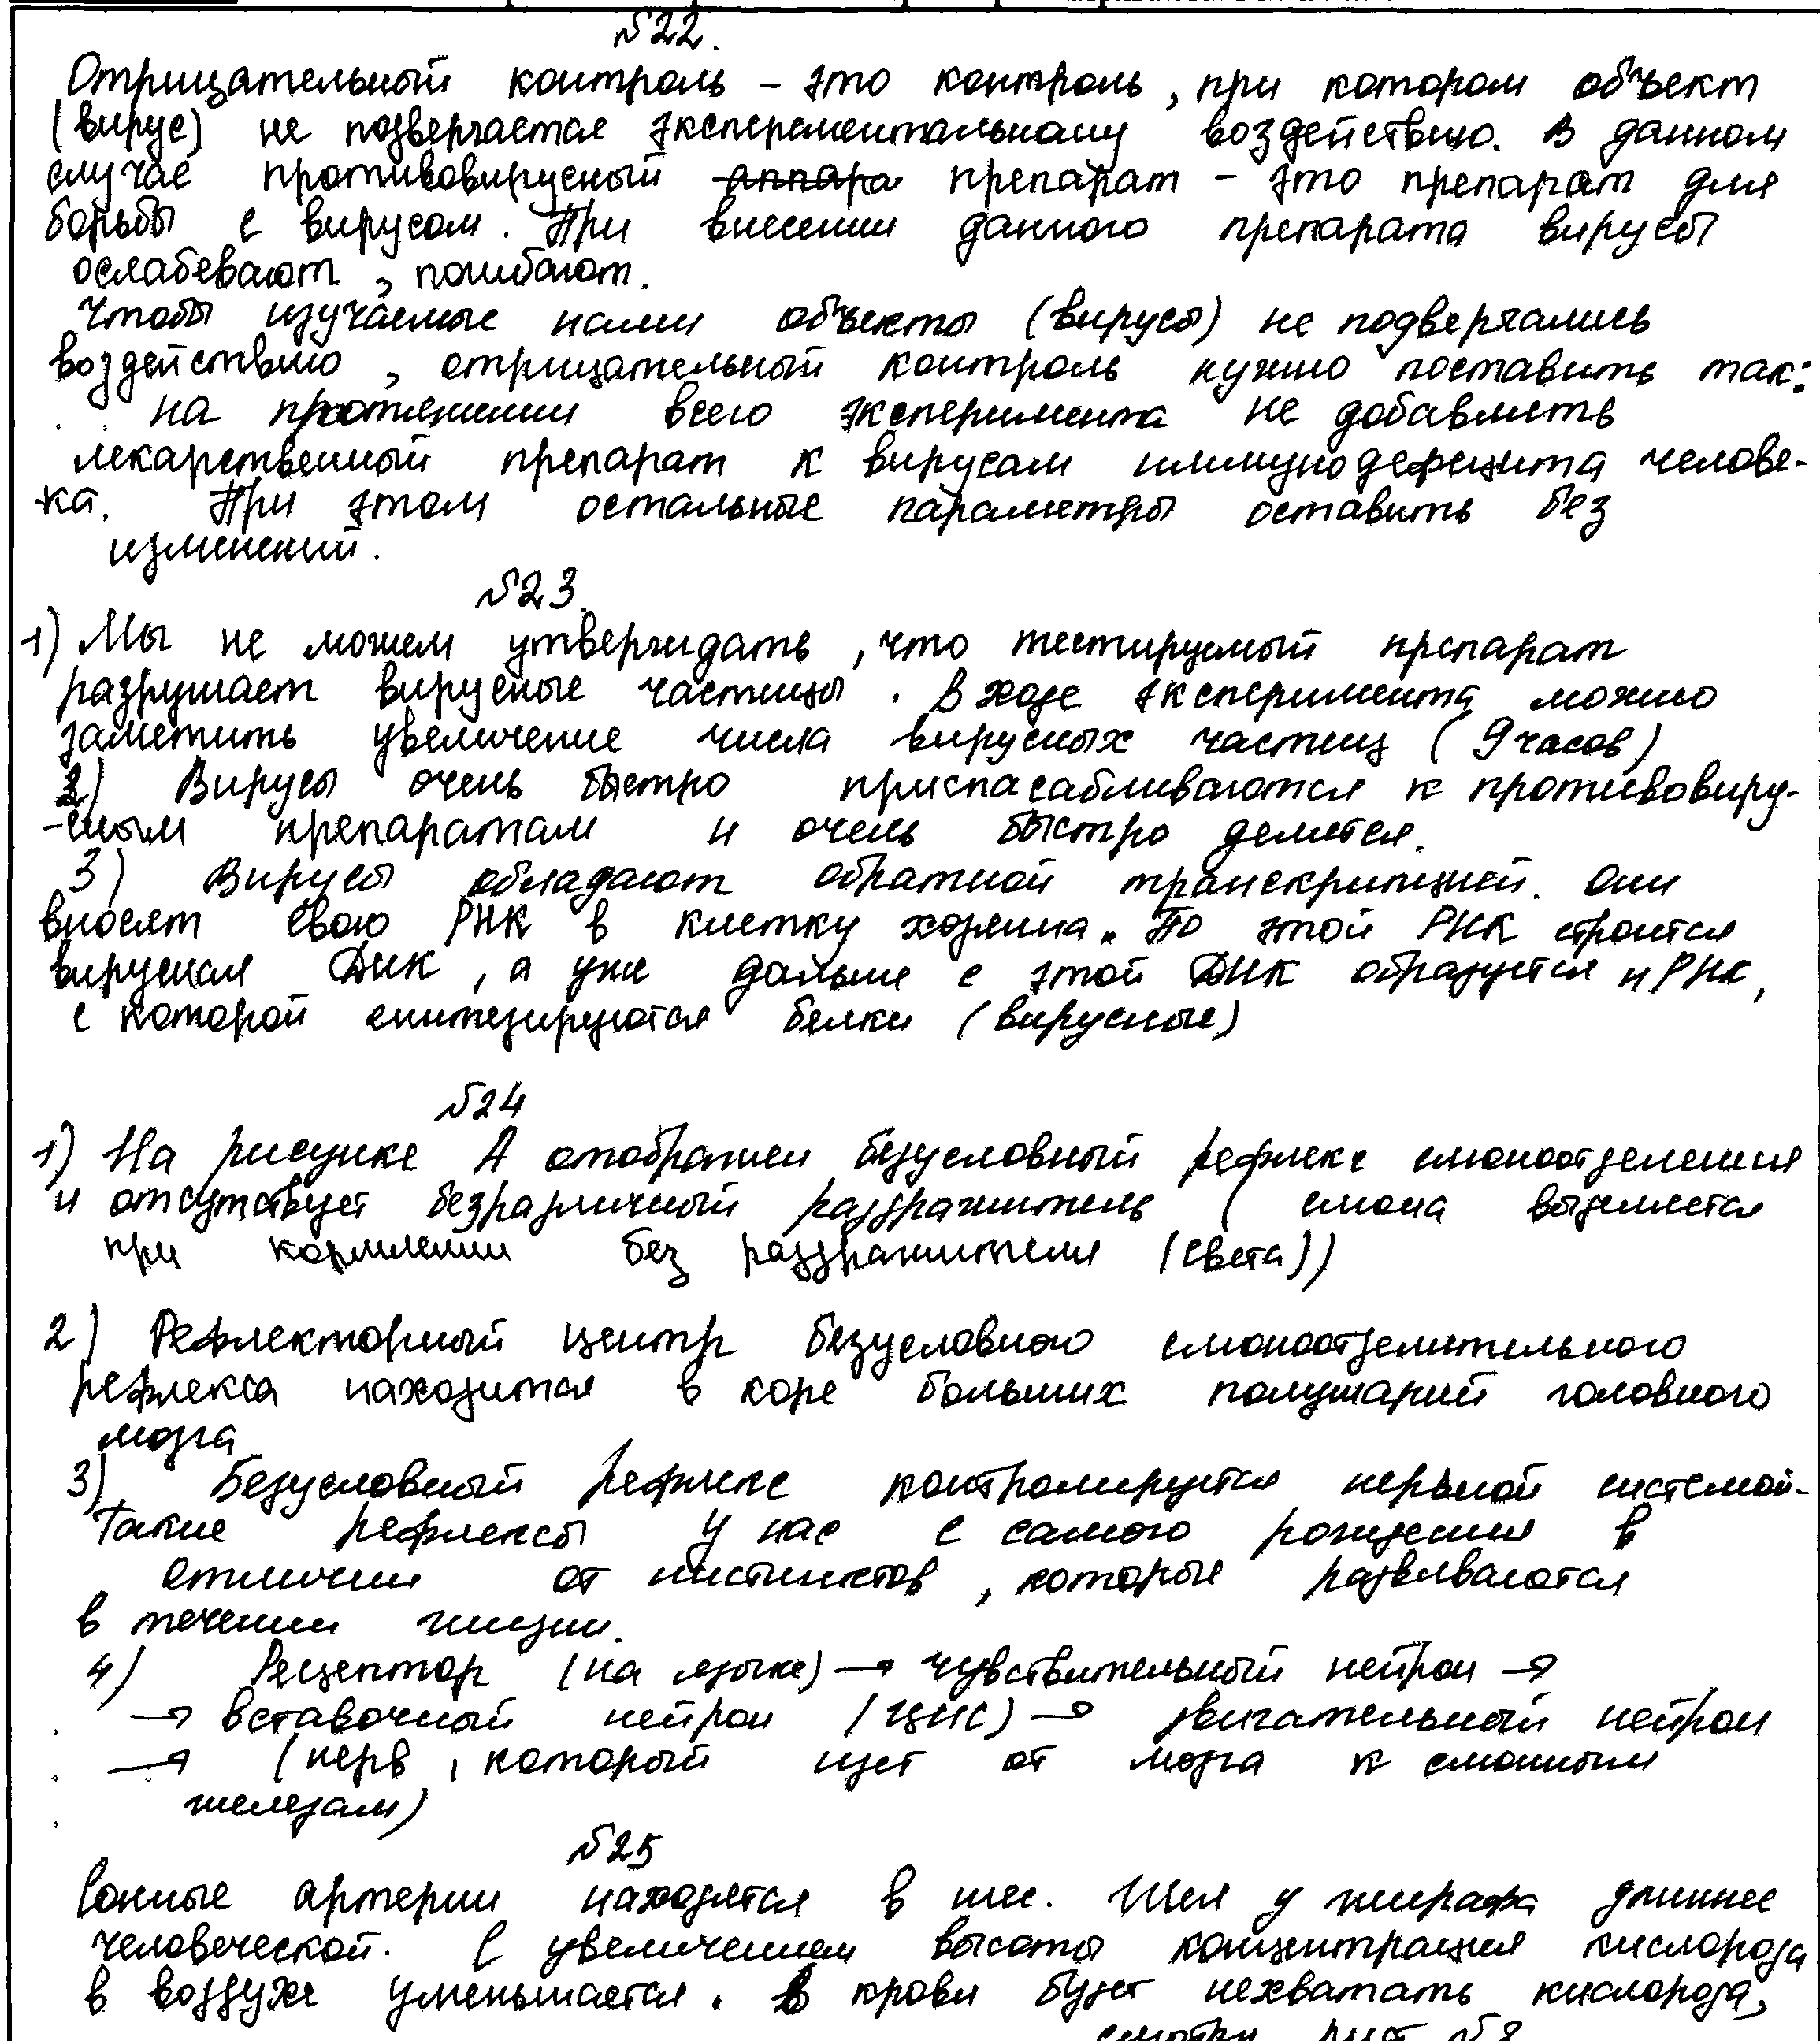 №22.
Отрицательный контроль – это контроль, при котором объект
(вирус) не подвергается эксперементальному воздействию. В данном
случае противовирусный аппара препарат – это препарат для
борьбы с вирусом. При внесении данного препарата вирусы
ослабевают, погибают.
Чтобы изучаемые нами объекты (вирусы) не подвергались
воздействию, отрицательный контроль нужно поставить так:
на протяжении всего эксперимента не добавлять
лекарственный препарат к вирусам иммунодефицита челове-
ка. При этом остальные параметры оставить без
изменений.
№23.
1) Мы не можем утверждать, что тестируемый препарат
разрушает вирусные частицы. В ходе эксперимента можно
заметить увеличение числа вирусных частиц (9 часов)
2) Вирусы очень быстро приспасабливаются к противовиру-
-сным препаратам и очень быстро делятся.
3) Вирусы обладают обратной транскрипцией. Они
вносят свою РНК в клетку хозяина. По этой РНК строится
вирусная ДНК, а уже дальше с этой ДНК образуется иРНК,
с которой синтезируются белки (вирусные)
№24
1) На рисунке А отображен безусловный рефлекс слюноотделения
и отсутствует безразличный раздражитель (слюна выделяется
при кормлении без раздражителя (света))
2) Рефлекторный центр безусловного слюноотделительного
рефлекса находится в коре больших полушарий головного
мозга
3) Безусловный рефлекс контролируется нервной системой.
Такие рефлексы у нас с самого рождения в
отличии от инстинктов, которые развиваются
в течении жизни.
4) Рецептор (на языке) → чувствительный нейрон →
→ вставочный нейрон (ЦНС) → двигательный нейрон
→ (нерв, который идет от мозга к слюнным
железам)
№25
Сонные артерии находятся в шее. Шея у жирафа длиннее
человеческой. С увеличением высоты концентрация кислорода
в воздухе уменьшается. В крови будет нехватать кислорода,
смотри лист №8